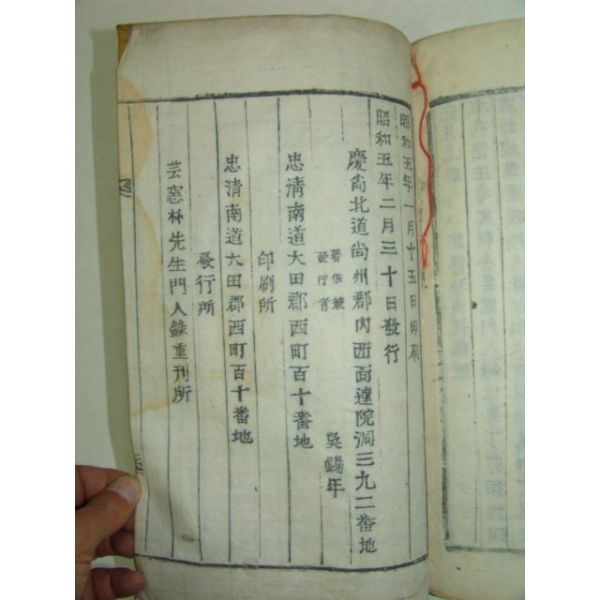 昭和五年一月十五日印刷
昭和五年二月三十日發行
慶尙北道尙州郡內西面達院洞三九二番地
著作兼
發行者
吳錫年
忠淸南道大田郡西町百十番地
印刷所
忠淸南道大田郡西町百十番地
發行所
芸窓朴先生門人錄重刊所